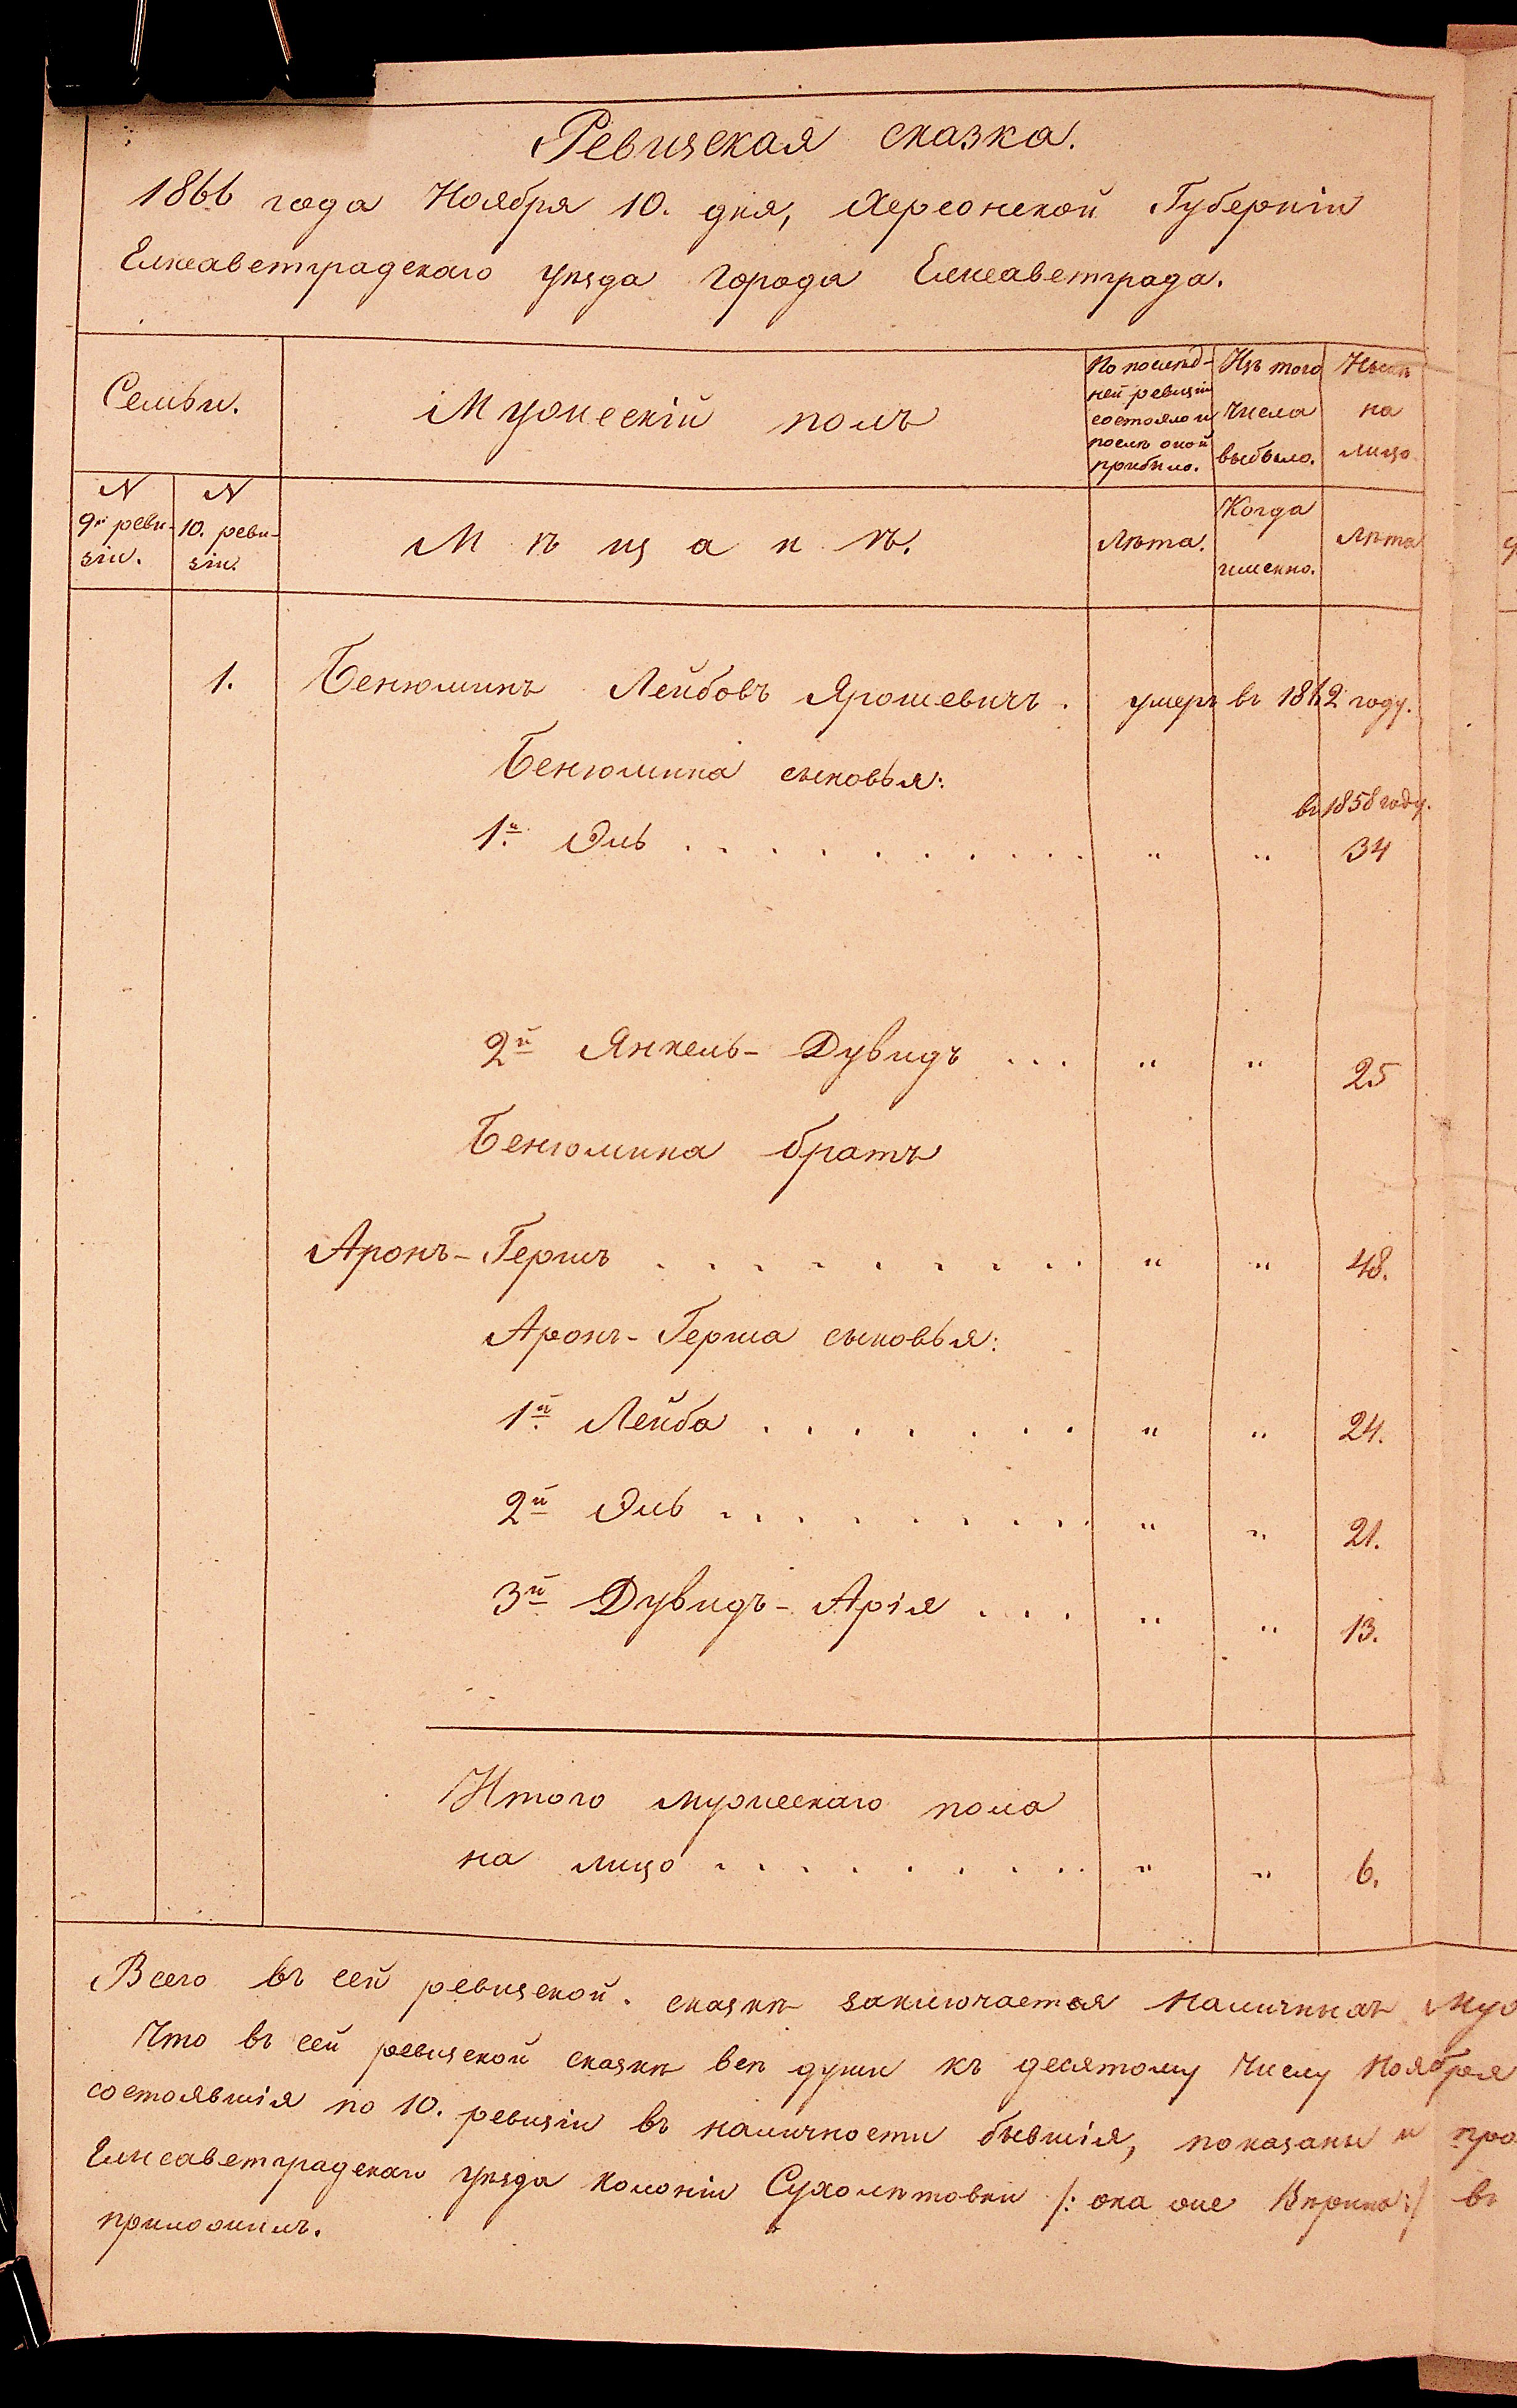 Ревизская сказка.
1866 года Ноября 10. дня, Херсонской Губерніи
Елисаветградскаго уѣзда города Елисаветграда.
Семьи.
Мужескій полъ
По послѣд-
ней ревизіи
состояло и
послѣ оной
прибыло.
Изъ того
числа
выбыло.
Нынѣ
на
лицо.
N
9й реви-
зіи.
N
10. реви-
зіи.
Мѣщанѣ.
Лѣта.
Когда
именно.
Лѣта
1. Бенюминъ Лейбовъ Ярошевичъ. умеръ въ 1862 году.
Бенюмина сыновья:
въ 1858 году.
1й Эль . . . . . . . . . . . " " 34
2й Янкель-Дувидъ . . . " " 25
Бенюмина братъ
Аронъ-Гершъ . . . . . . . . . " " 48.
Аронъ-Герша сыновья:
1й Лейба . . . . . . . " " 24.
2й Эль . . . . . . . . . " " 21.
3й Дувидъ-Арія . . . " " 13.
Итого мужескаго пола
на лицо . . . . . . . . . " " 6.
Всего въ сей ревизской. сказкѣ заключается наличныхъ муж
Что въ сей ревизской сказкѣ всѣ души къ десятому числу Ноября
состоявшія по 10. ревизіи въ наличности бывшія, показаны и про
Елисаветградскаго уѣзда колоніи Сухолѣтовки /: она же Вѣрина :/ въ
приложилъ.